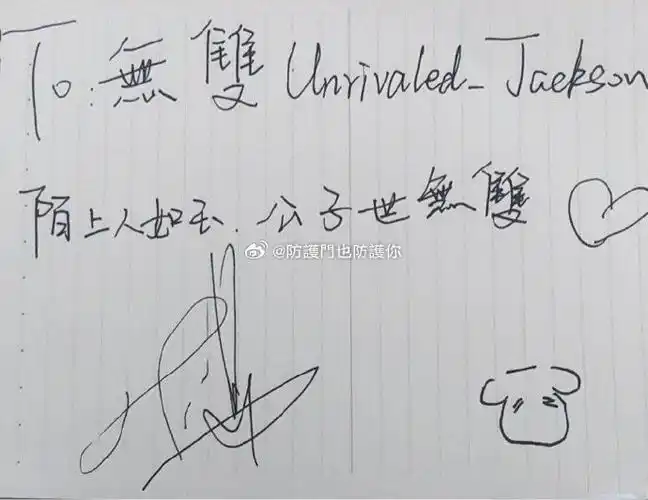 To:無雙 Unrivaled_Jackson
陌上人如玉.公子世無雙
@防護門也防護你